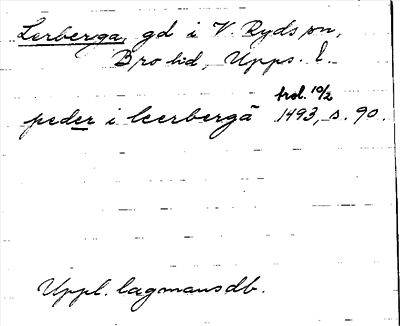 Lerberga, gd i V. Ryds sn,
Bro hd, Upps. l.
prol. 10/2
peder i leerbergā 1493, s. 90.
Uppl. lagmansdb.